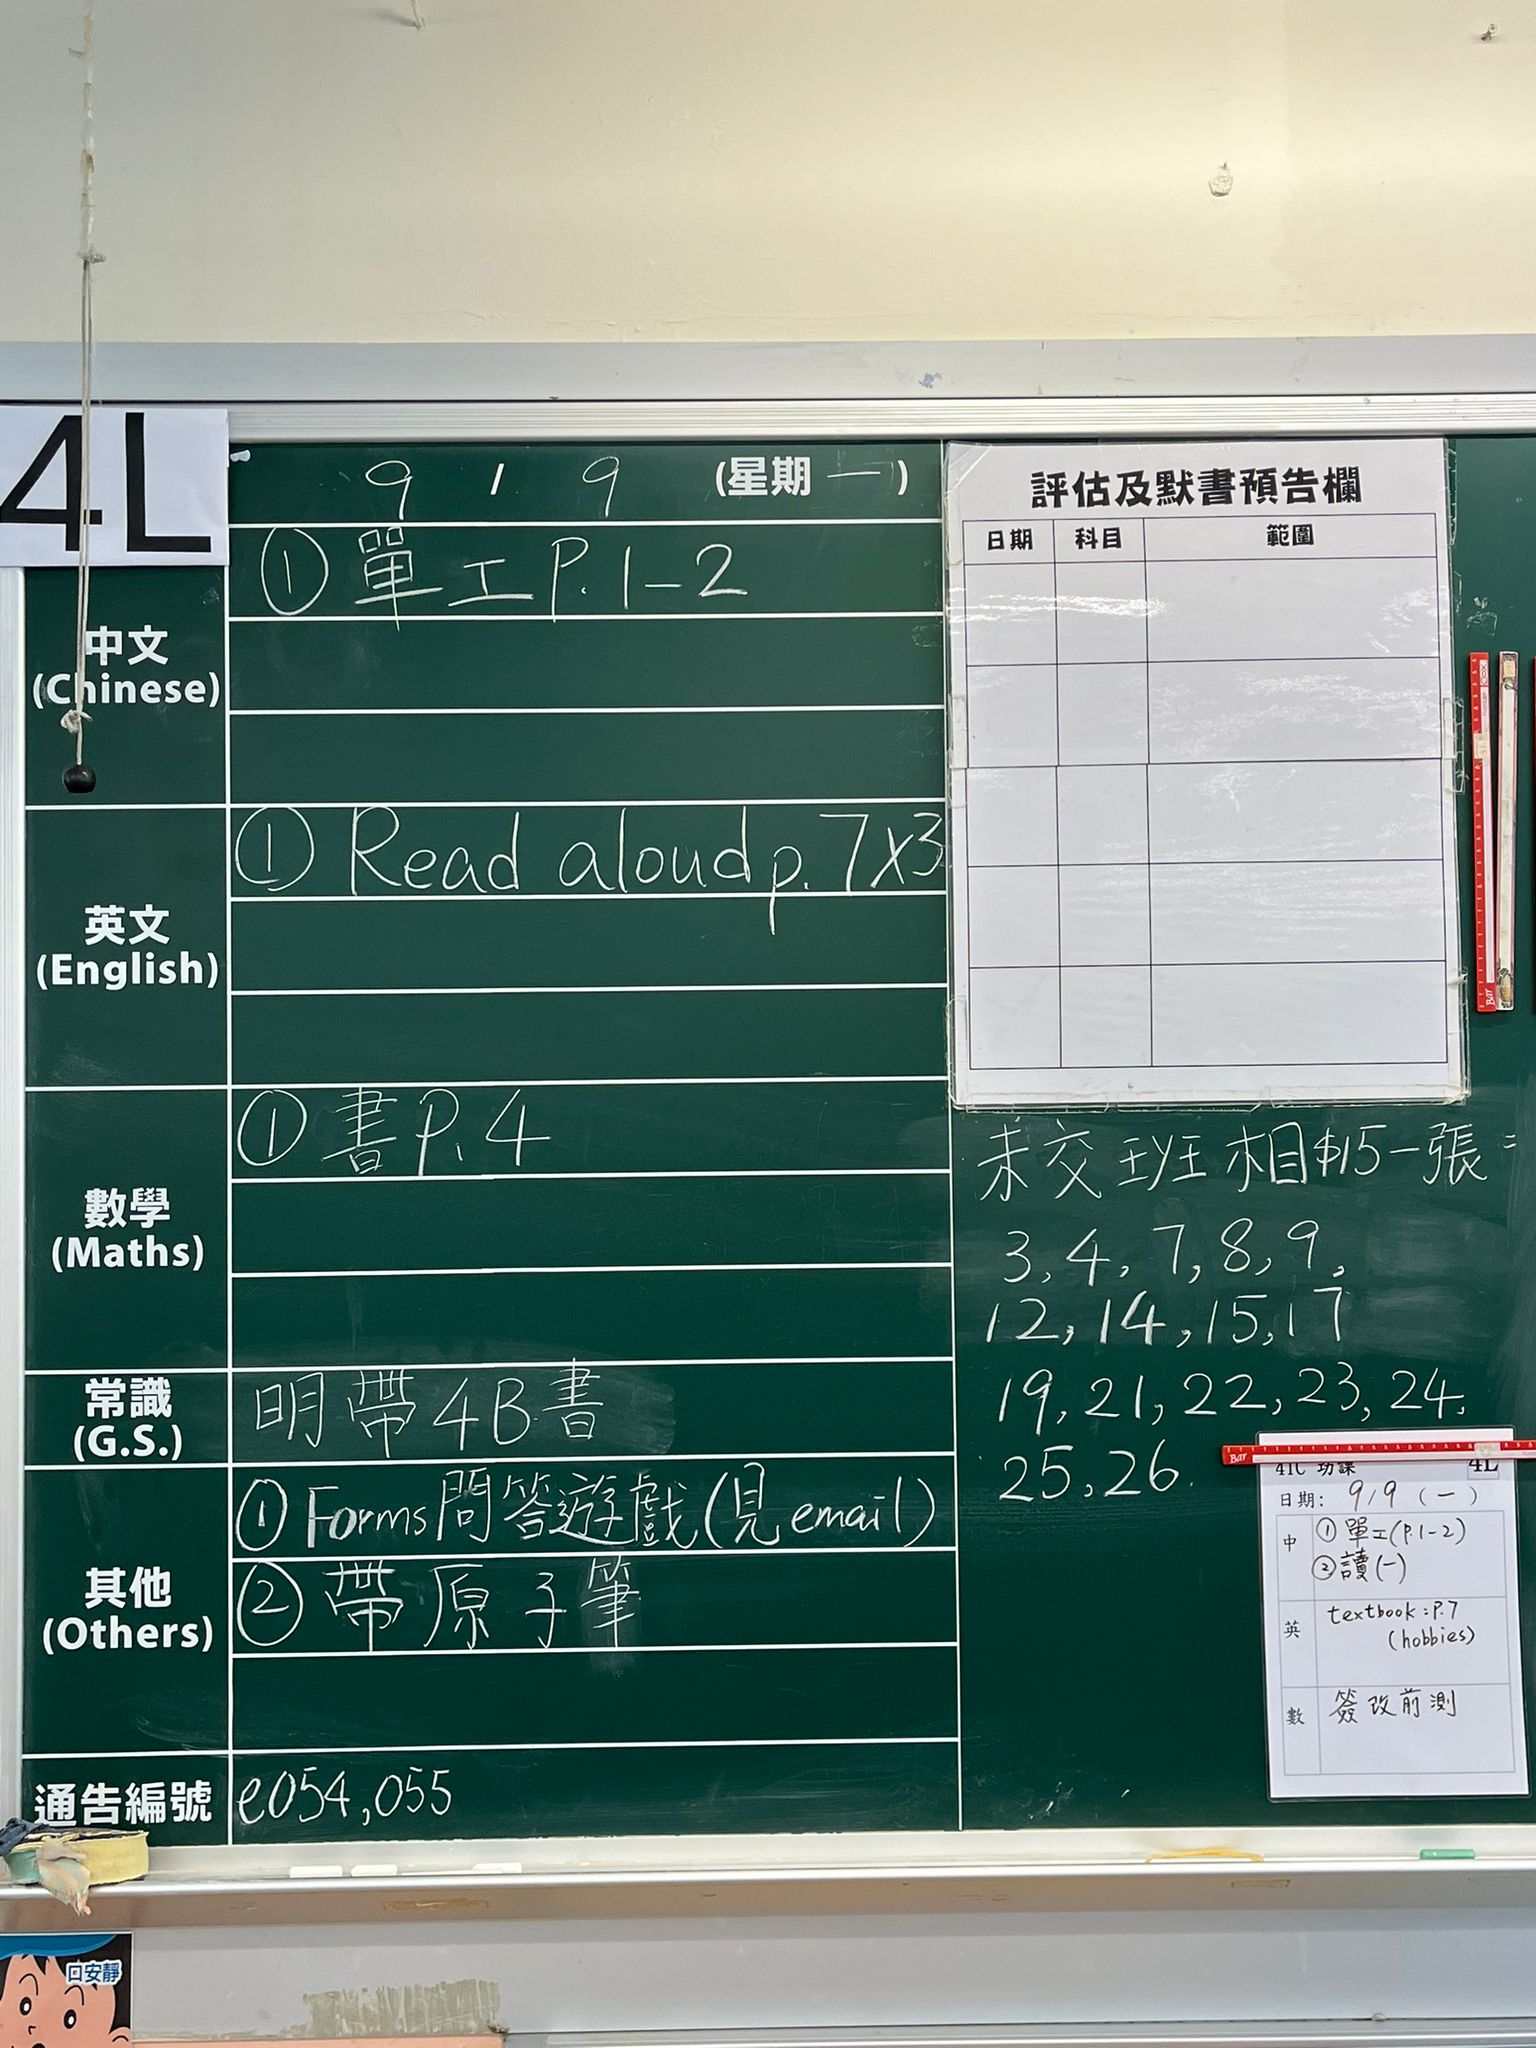 4L
9 / 9 (星期一)
中文
(Chinese)
① 單工 P.1-2
英文
(English)
① Read aloud p.7x3
數學
(Maths)
① 書 P.4
常識
(G.S.)
明帶4B書
其他
(Others)
① Forms問答遊戲(見email)
② 帶原子筆
通告編號
e054,055
評估及默書預告欄
日期 科目 範圍
未交班相$15一張:
3, 4, 7, 8, 9,
12, 14, 15, 17
19, 21, 22, 23, 24,
25, 26.
功課 4L
日期: 9/9 (一)
中 ① 單工(P.1-2)
② 讀(一)
英 textbook:P.7
(hobbies)
數 簽改前測
Bar
Bar
口安靜